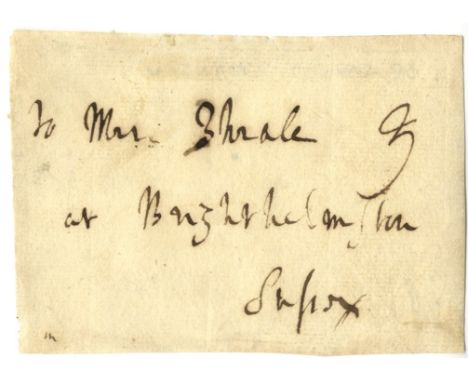 To Mrs. Thrale
at Brighthelmston
Sussex